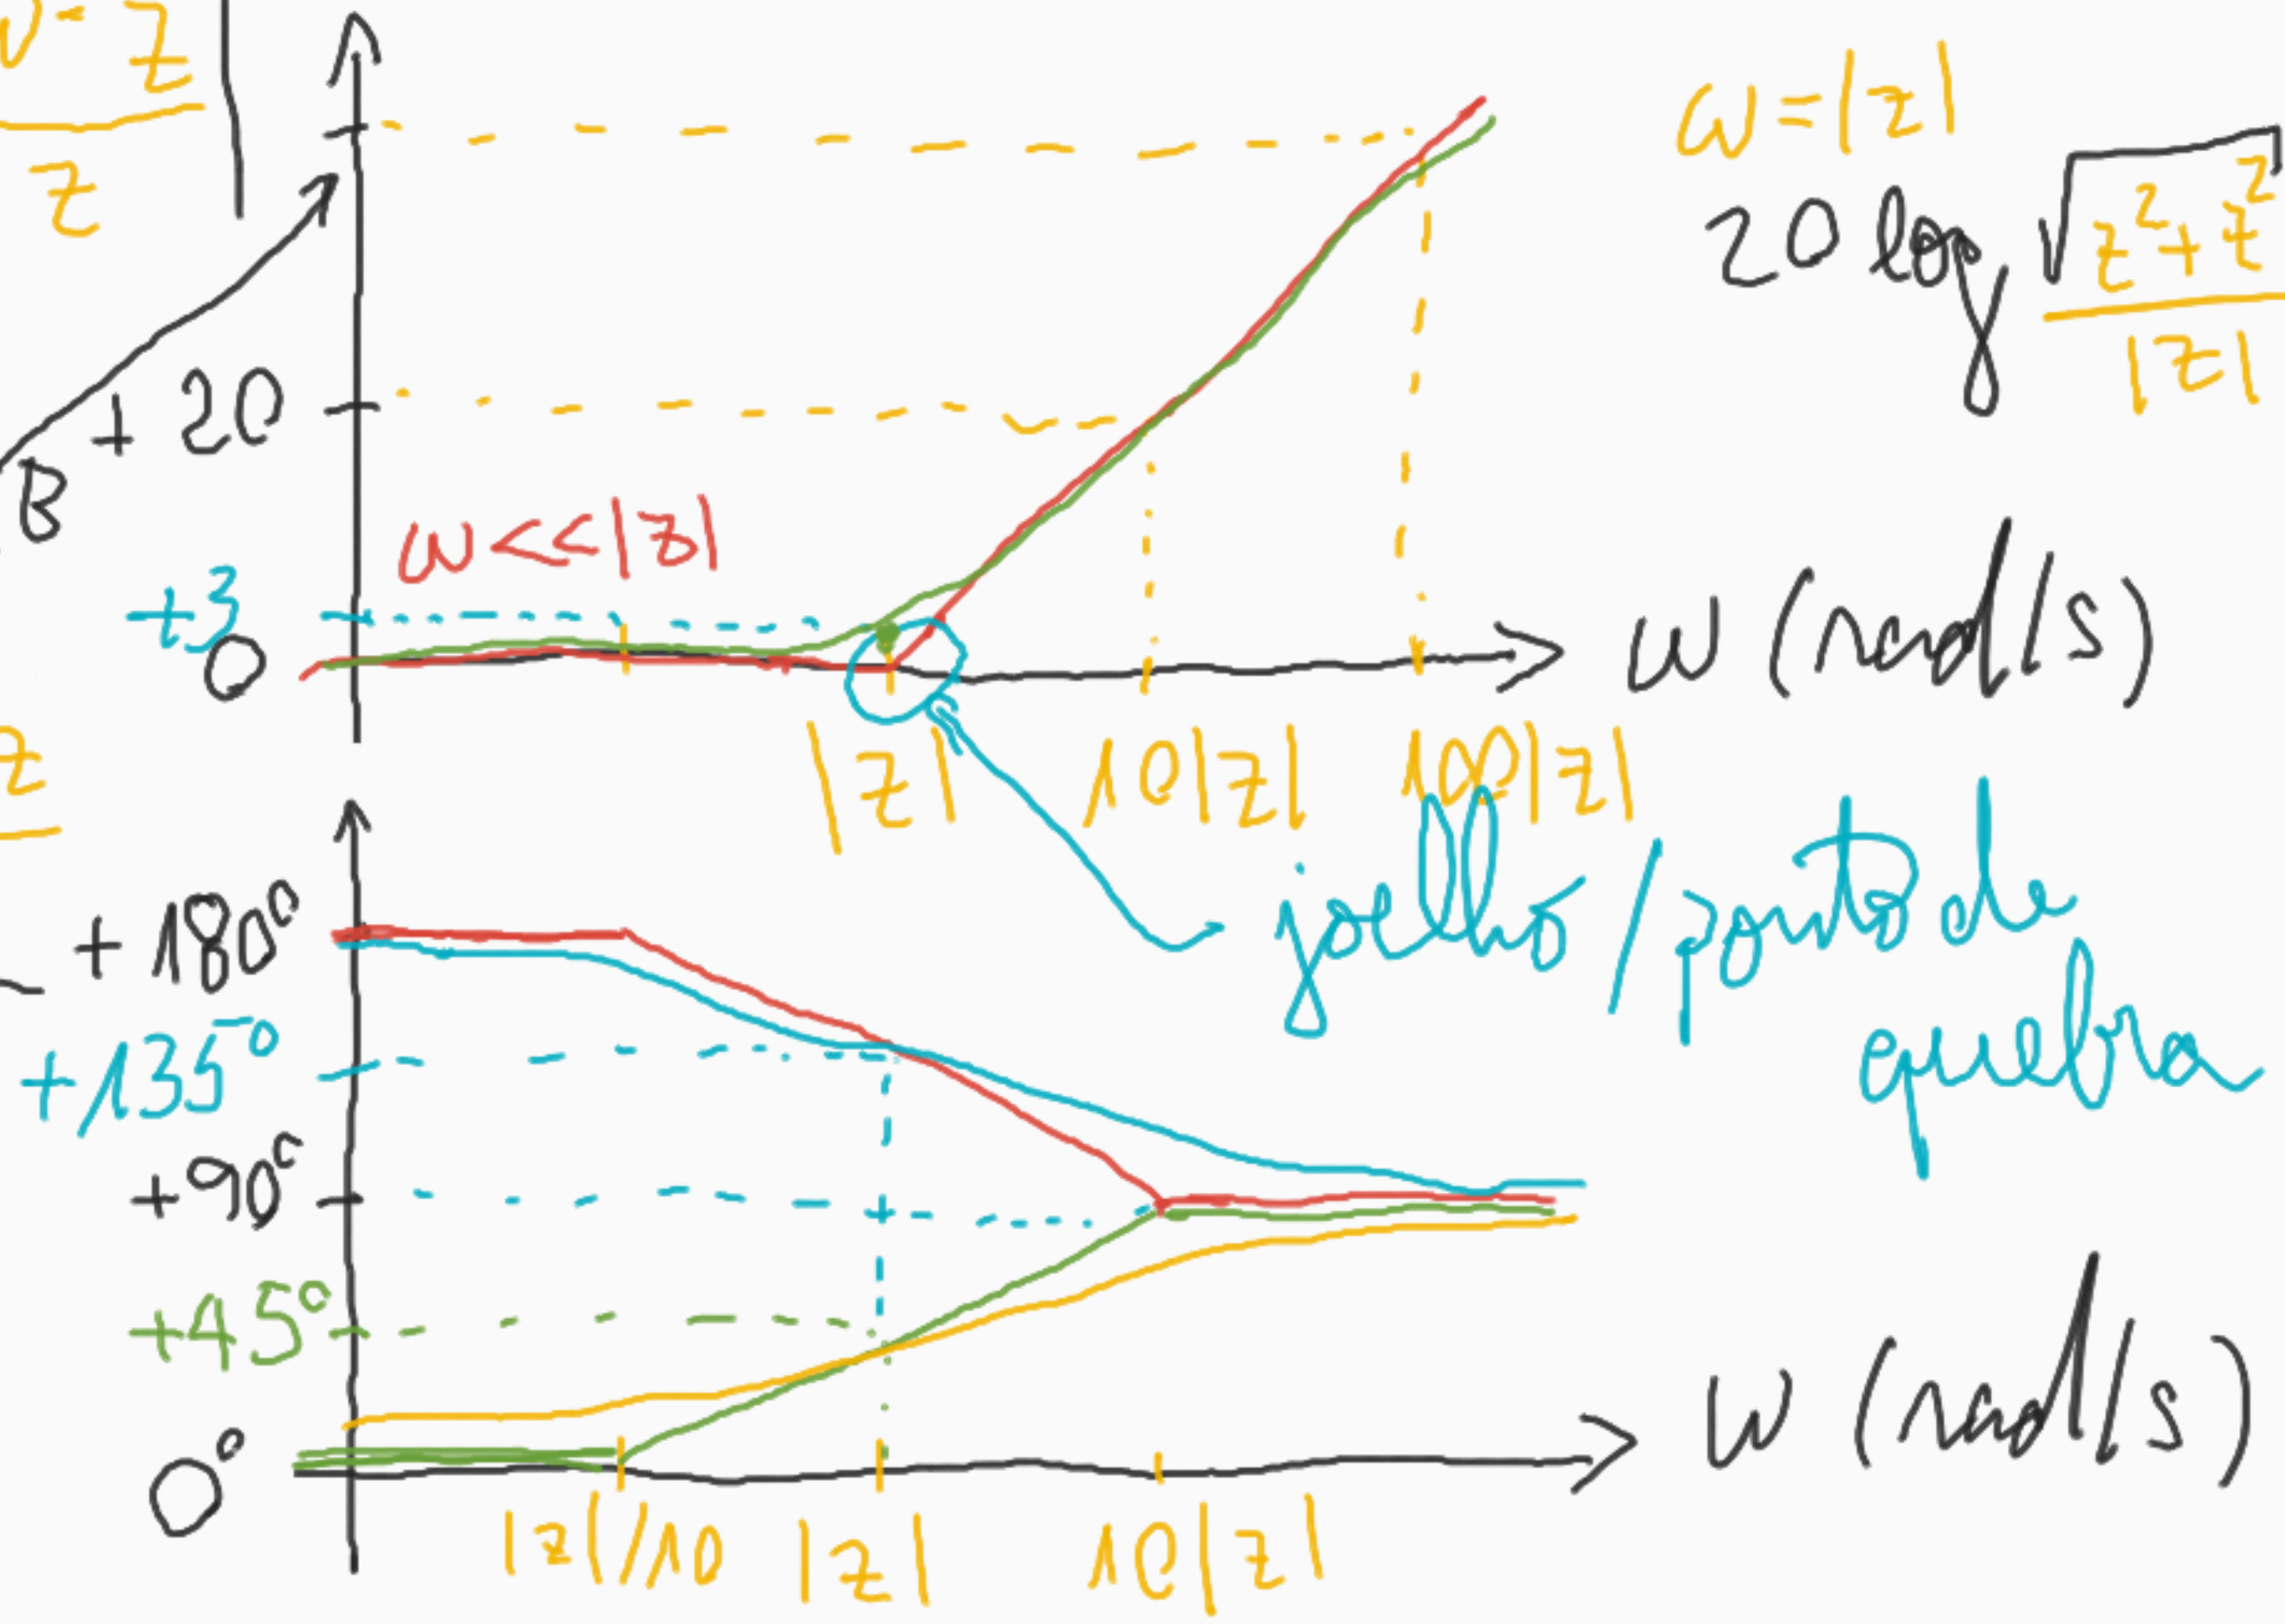 z
z
ω=|z|
20 log √z²+z²
|z|
+20
B
ω<<|z|
+3
0
ω (rad/s)
z
|z| 10|z| 100|z|
joelho/ponto de
quebra
+180°
+135°
+90°
+45°
0°
ω (rad/s)
|z|/10 |z| 10|z|